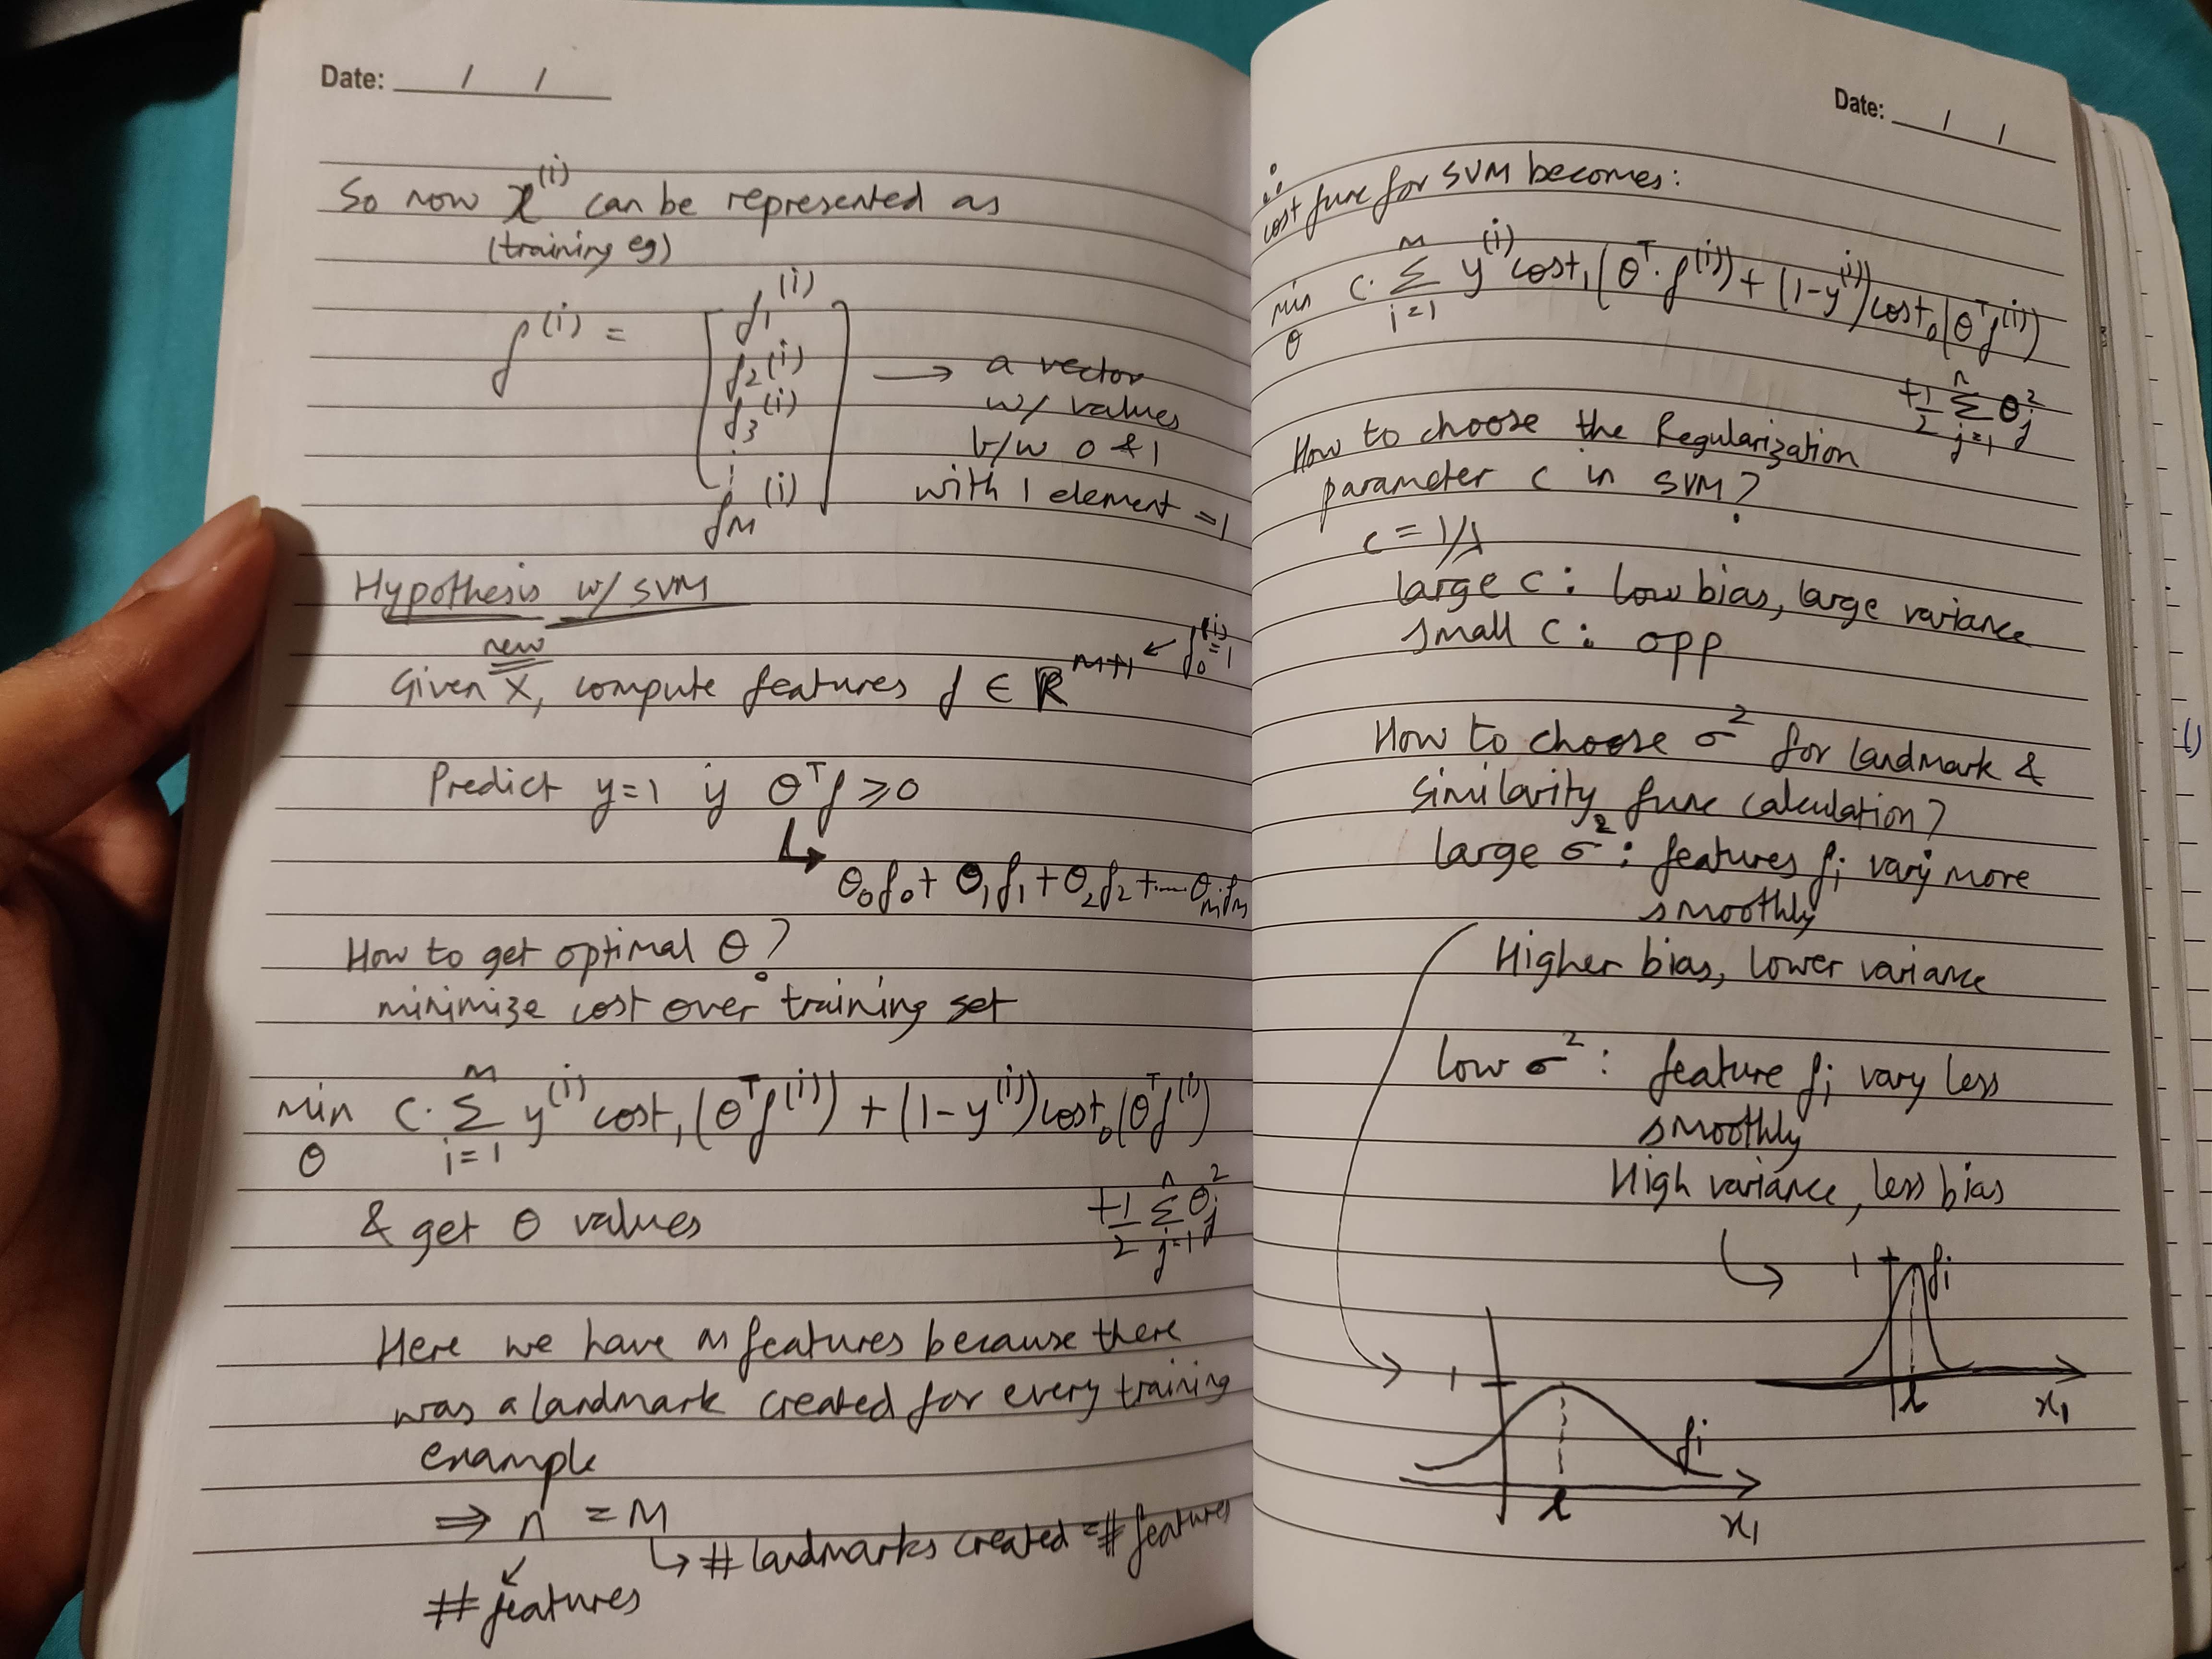 Date: / /
So now x^(i) can be represented as
(training eg)
f^(i) = [ f1^(i)
f2^(i)
f3^(i)
⋮
fM^(i) ]
→ a vector
w/ values
b/w 0 & 1
with 1 element = 1
Hypothesis w/ SVM
new
Given X, compute features f ∈ R^(M+1) ← f0^(i) = 1
Predict y=1 if θ^T f ≥ 0
↳ θ0f0 + θ1f1 + θ2f2 + .... θmfm
How to get optimal θ?
minimize cost over training set
min θ C. Σ(i=1 to M) y^(i) cost1(θ^T f^(i)) + (1-y^(i)) cost0(θ^T f^(i))
+ 1/2 Σ(j=1 to n) θj^2
& get θ values
Here we have m features because there
was a landmark created for every training
example
⇒ n = M
↳ # landmarks created = # features
# features
Date: / /
∴
cost func for SVM becomes:
min θ C. Σ(i=1 to M) y^(i) cost1(θ^T. f^(i)) + (1-y^(i)) cost0(θ^T f^(i))
+ 1/2 Σ(j=1 to n) θj^2
How to choose the Regularization
parameter C in SVM?
C = 1/λ
large C: low bias, large variance
small C: opp
How to choose σ^2 for landmark &
similarity func calculation?
large σ^2: features fi vary more
smoothly
Higher bias, lower variance
low σ^2: feature fi vary less
smoothly
High variance, less bias
1 fi
l x1
1 fi
l x1
()